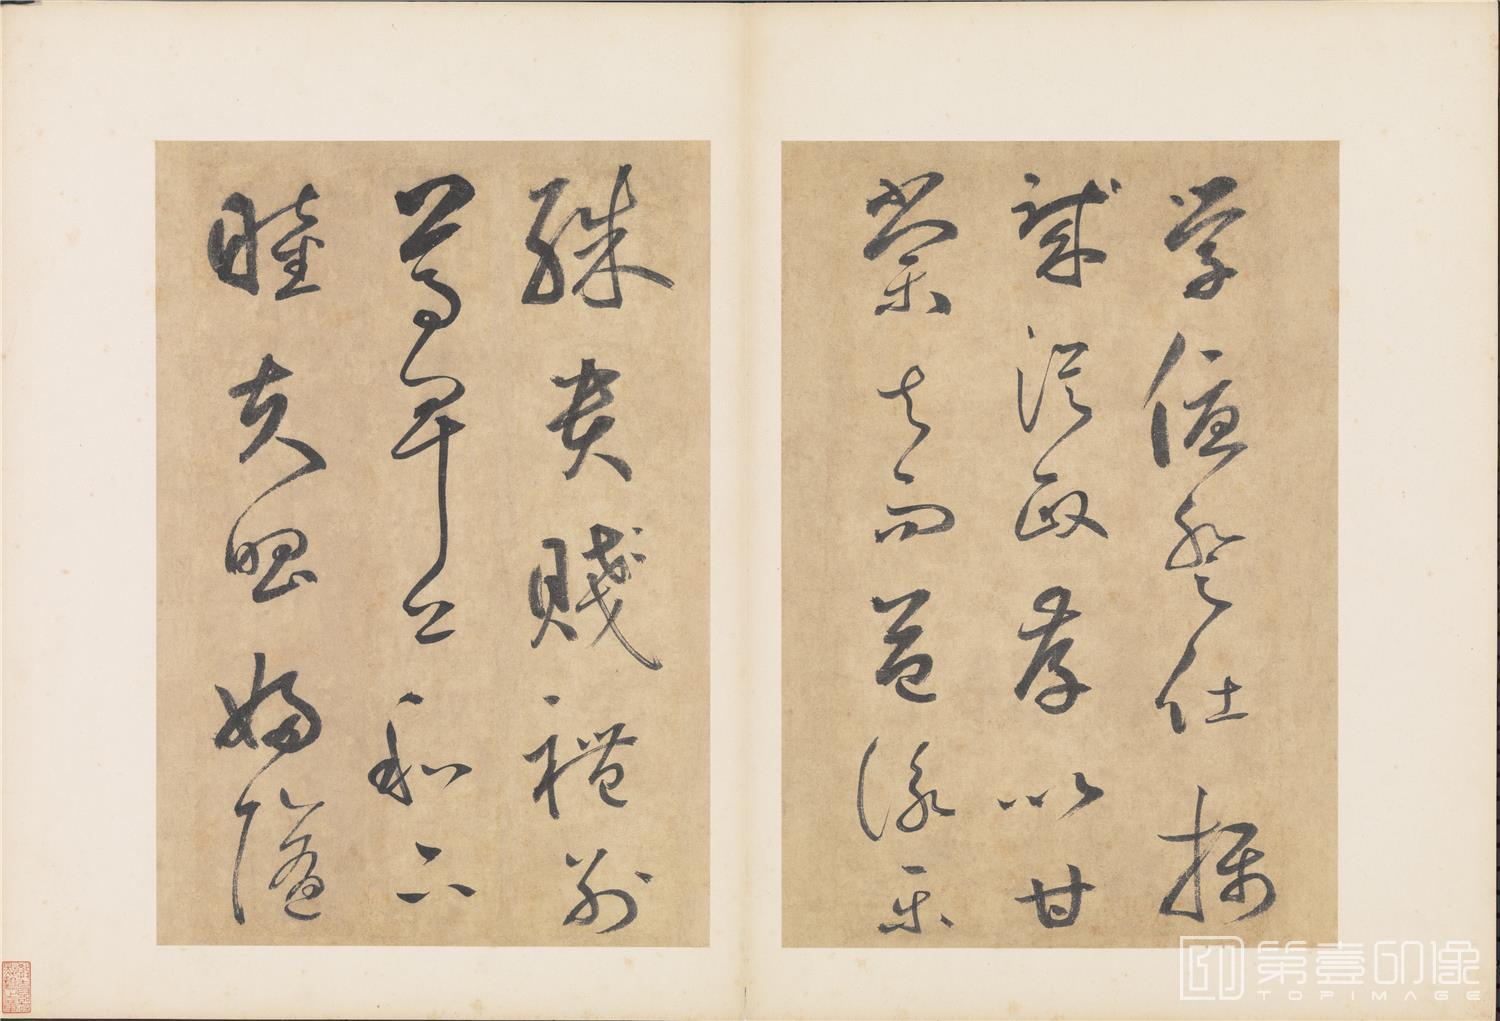 學優登仕攝
職從政存以甘
棠去而益詠樂
殊貴賤禮別
尊卑上和下
睦夫唱婦隨
第壹印像
TOPIMAGE